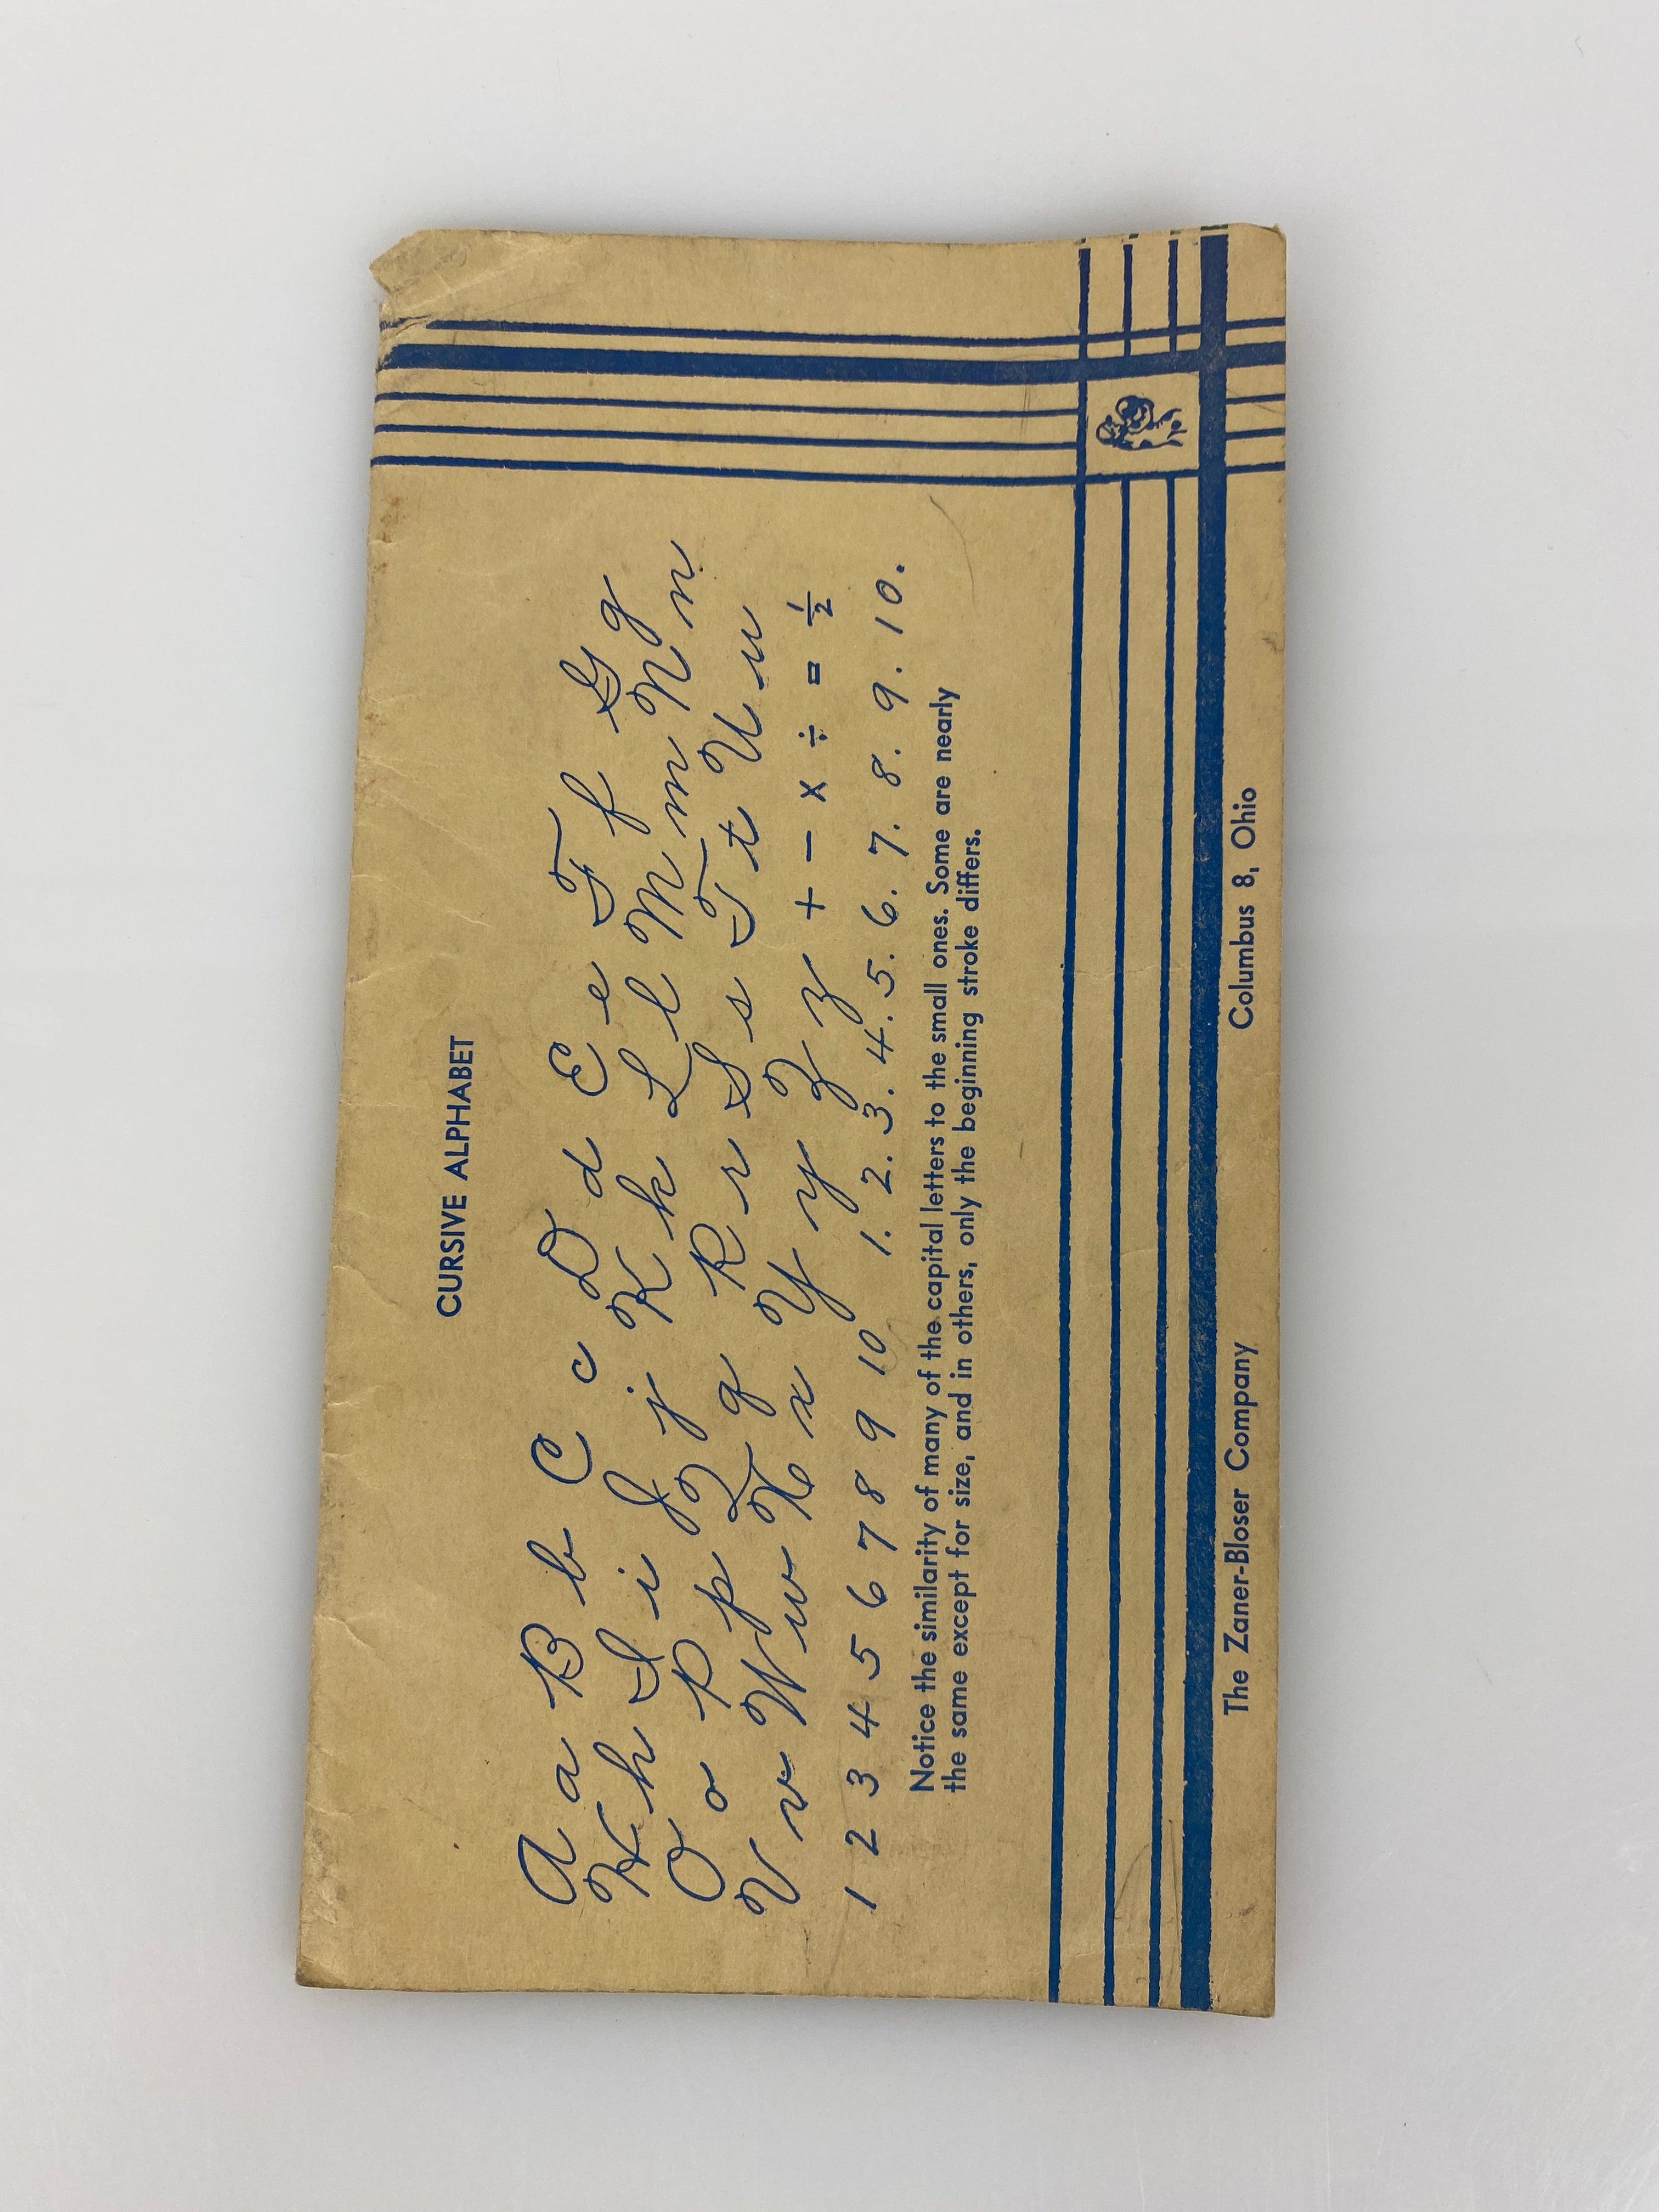 CURSIVE ALPHABET
A a B b C c D d E e F f G g
H h I i J j K k L l M m N n
O o P p Q q R r S s T t U u
V v W w X x Y y Z z + − x ÷ = ½
1 2 3 4 5 6 7 8 9 10 1. 2. 3. 4. 5. 6. 7. 8. 9. 10.
Notice the similarity of many of the capital letters to the small ones. Some are nearly
the same except for size, and in others, only the beginning stroke differs.
The Zaner-Bloser Company Columbus 8, Ohio